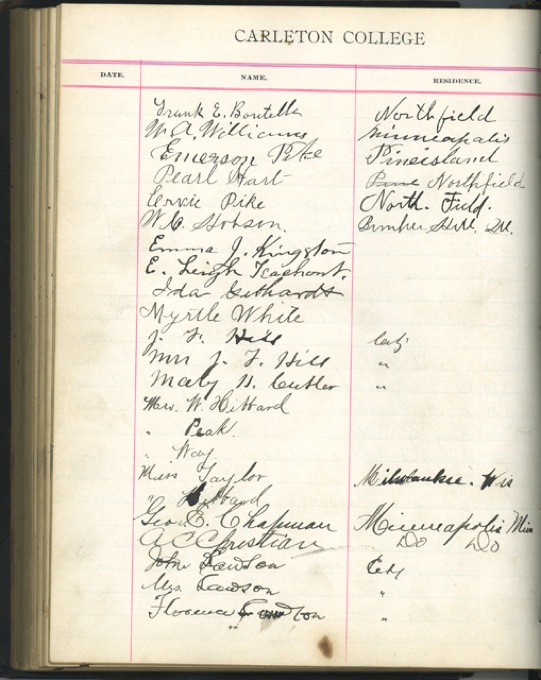 CARLETON COLLEGE
DATE. NAME. RESIDENCE.
Frank E. Boutelle Northfield
W. A. Williams Minneapolis
Emerson Pike Pineisland
Pearl Hart Northfield
Ervie Pike North. Field.
W. C. Hobson. Bunker Hill, Ill.
Emma J. Kingston
E. Leigh
Ida Gethardt
Myrtle White
J. F. Hill City
Mrs J. F. Hill "
Mary H. Cutler "
Mrs. W. Hibbard
" Peak.
" Way
Miss Taylor Milwaukee. Wis
" Hibbard
Geo. E. Chapman Minneapolis Minn
A C Christian Do Do
John Lawson City
Mrs. Lawson "
Florence Lawson "